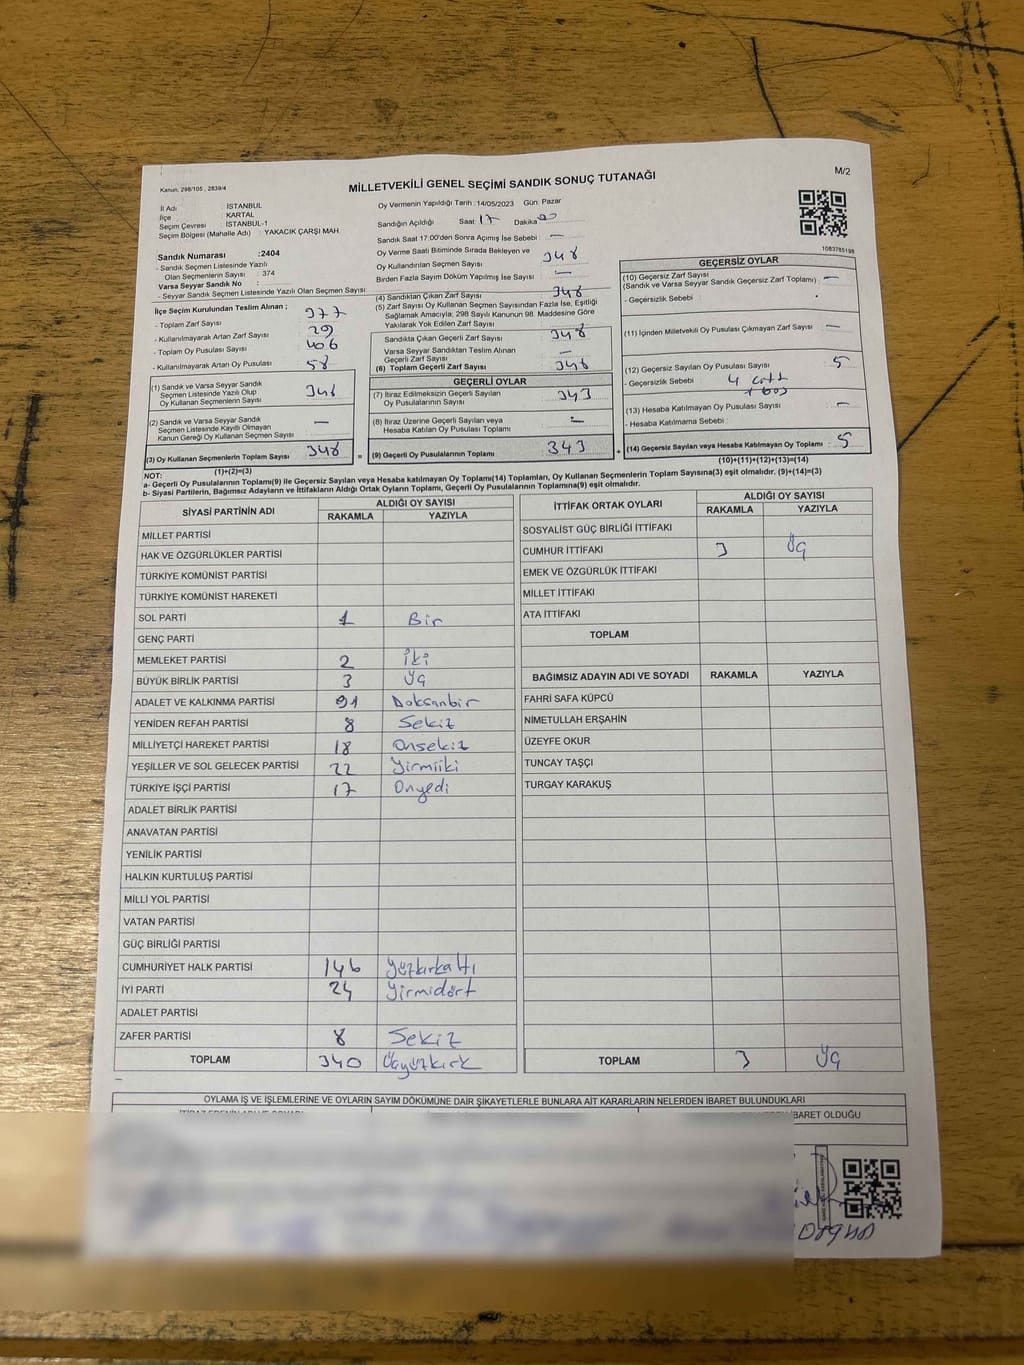 Kanun: 298/105 , 2839/4
MİLLETVEKİLİ GENEL SEÇİMİ SANDIK SONUÇ TUTANAĞI
M/2
İl Adı : İSTANBUL
İlçe : KARTAL
Seçim Çevresi : İSTANBUL-1
Seçim Bölgesi (Mahalle Adı) : YAKACIK ÇARŞI MAH.
Sandık Numarası :2404
- Sandık Seçmen Listesinde Yazılı
Olan Seçmenlerin Sayısı : 374
Varsa Seyyar Sandık No :
- Seyyar Sandık Seçmen Listesinde Yazılı Olan Seçmen Sayısı:
İlçe Seçim Kurulundan Teslim Alınan ;
- Toplam Zarf Sayısı 377
- Kullanılmayarak Artan Zarf Sayısı 29
- Toplam Oy Pusulası Sayısı 406
- Kullanılmayarak Artan Oy Pusulası 58
(1) Sandık ve Varsa Seyyar Sandık
Seçmen Listesinde Yazılı Olup
Oy Kullanan Seçmenlerin Sayısı 348
(2) Sandık ve Varsa Seyyar Sandık
Seçmen Listesinde Kayıtlı Olmayan
Kanun Gereği Oy Kullanan Seçmen Sayısı —
(3) Oy Kullanan Seçmenlerin Toplam Sayısı 348
(1)+(2)=(3)
Oy Vermenin Yapıldığı Tarih :14/05/2023 Gün: Pazar
Sandığın Açıldığı Saat 17 Dakika 20
Sandık Saat 17:00'den Sonra Açılmış İse Sebebi : —
Oy Verme Saati Bitiminde Sırada Bekleyen ve
Oy Kullandırılan Seçmen Sayısı 348
Birden Fazla Sayım Döküm Yapılmış İse Sayısı —
(4) Sandıktan Çıkan Zarf Sayısı 348
(5) Zarf Sayısı Oy Kullanan Seçmen Sayısından Fazla İse, Eşitliği
Sağlamak Amacıyla; 298 Sayılı Kanunun 98. Maddesine Göre
Yakılarak Yok Edilen Zarf Sayısı
Sandıkta Çıkan Geçerli Zarf Sayısı 348
Varsa Seyyar Sandıktan Teslim Alınan
Geçerli Zarf Sayısı —
(6) Toplam Geçerli Zarf Sayısı 348
GEÇERLİ OYLAR
(7) İtiraz Edilmeksizin Geçerli Sayılan
Oy Pusulalarının Sayısı 343
(8) İtiraz Üzerine Geçerli Sayılan veya
Hesaba Katılan Oy Pusulası Toplamı —
= (9) Geçerli Oy Pusulalarının Toplamı 343
1083785198
GEÇERSİZ OYLAR
(10) Geçersiz Zarf Sayısı
(Sandık ve Varsa Seyyar Sandık Geçersiz Zarf Toplamı) —
- Geçersizlik Sebebi :
(11) İçinden Milletvekili Oy Pusulası Çıkmayan Zarf Sayısı —
(12) Geçersiz Sayılan Oy Pusulası Sayısı 5
- Geçersizlik Sebebi : 4
(13) Hesaba Katılmayan Oy Pusulası Sayısı —
- Hesaba Katılmama Sebebi :
+ (14) Geçersiz Sayılan veya Hesaba Katılmayan Oy Toplamı 5
(10)+(11)+(12)+(13)=(14)
NOT:
a- Geçerli Oy Pusulalarının Toplamı(9) ile Geçersiz Sayılan veya Hesaba katılmayan Oy Toplamı(14) Toplamları, Oy Kullanan Seçmenlerin Toplam Sayısına(3) eşit olmalıdır. (9)+(14)=(3)
b- Siyasi Partilerin, Bağımsız Adayların ve İttifakların Aldığı Ortak Oyların Toplamı, Geçerli Oy Pusulalarının Toplamına(9) eşit olmalıdır.
SİYASİ PARTİNİN ADI ALDIĞI OY SAYISI
RAKAMLA YAZIYLA
MİLLET PARTİSİ
HAK VE ÖZGÜRLÜKLER PARTİSİ
TÜRKİYE KOMÜNİST PARTİSİ
TÜRKİYE KOMÜNİST HAREKETİ
SOL PARTİ 1 Bir
GENÇ PARTİ
MEMLEKET PARTİSİ 2 İki
BÜYÜK BİRLİK PARTİSİ 3 Üç
ADALET VE KALKINMA PARTİSİ 91 Doksanbir
YENİDEN REFAH PARTİSİ 8 Sekiz
MİLLİYETÇİ HAREKET PARTİSİ 18 Onsekiz
YEŞİLLER VE SOL GELECEK PARTİSİ 22 Yirmiiki
TÜRKİYE İŞÇİ PARTİSİ 17 Onyedi
ADALET BİRLİK PARTİSİ
ANAVATAN PARTİSİ
YENİLİK PARTİSİ
HALKIN KURTULUŞ PARTİSİ
MİLLİ YOL PARTİSİ
VATAN PARTİSİ
GÜÇ BİRLİĞİ PARTİSİ
CUMHURİYET HALK PARTİSİ 146 Yüzkırkaltı
İYİ PARTİ 24 Yirmidört
ADALET PARTİSİ
ZAFER PARTİSİ 8 Sekiz
TOPLAM 340 Üçyüzkırk
İTTİFAK ORTAK OYLARI ALDIĞI OY SAYISI
RAKAMLA YAZIYLA
SOSYALİST GÜÇ BİRLİĞİ İTTİFAKI
CUMHUR İTTİFAKI 3 Üç
EMEK VE ÖZGÜRLÜK İTTİFAKI
MİLLET İTTİFAKI
ATA İTTİFAKI
TOPLAM
BAĞIMSIZ ADAYIN ADI VE SOYADI RAKAMLA YAZIYLA
FAHRİ SAFA KÜPCÜ
NİMETULLAH ERŞAHİN
ÜZEYFE OKUR
TUNCAY TAŞÇI
TURGAY KARAKUŞ
TOPLAM 3 Üç
OYLAMA İŞ VE İŞLEMLERİNE VE OYLARIN SAYIM DÖKÜMÜNE DAİR ŞİKAYETLERLE BUNLARA AİT KARARLARIN NELERDEN İBARET BULUNDUKLARI
İBARET OLDUĞU